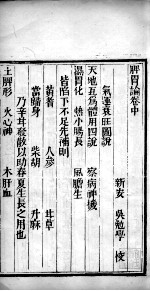 脾胃論卷中
新安 吳勉學 校
氣運衰旺圖說
天地互為體用四說 察病神機
濕胃化 熱小腸長 風膽生
皆陷下不足先補則
黃耆 人參 甘草
當歸身 柴胡 升麻
乃辛甘發散以助春夏生長之用也
土脾形 火心神 木肝血